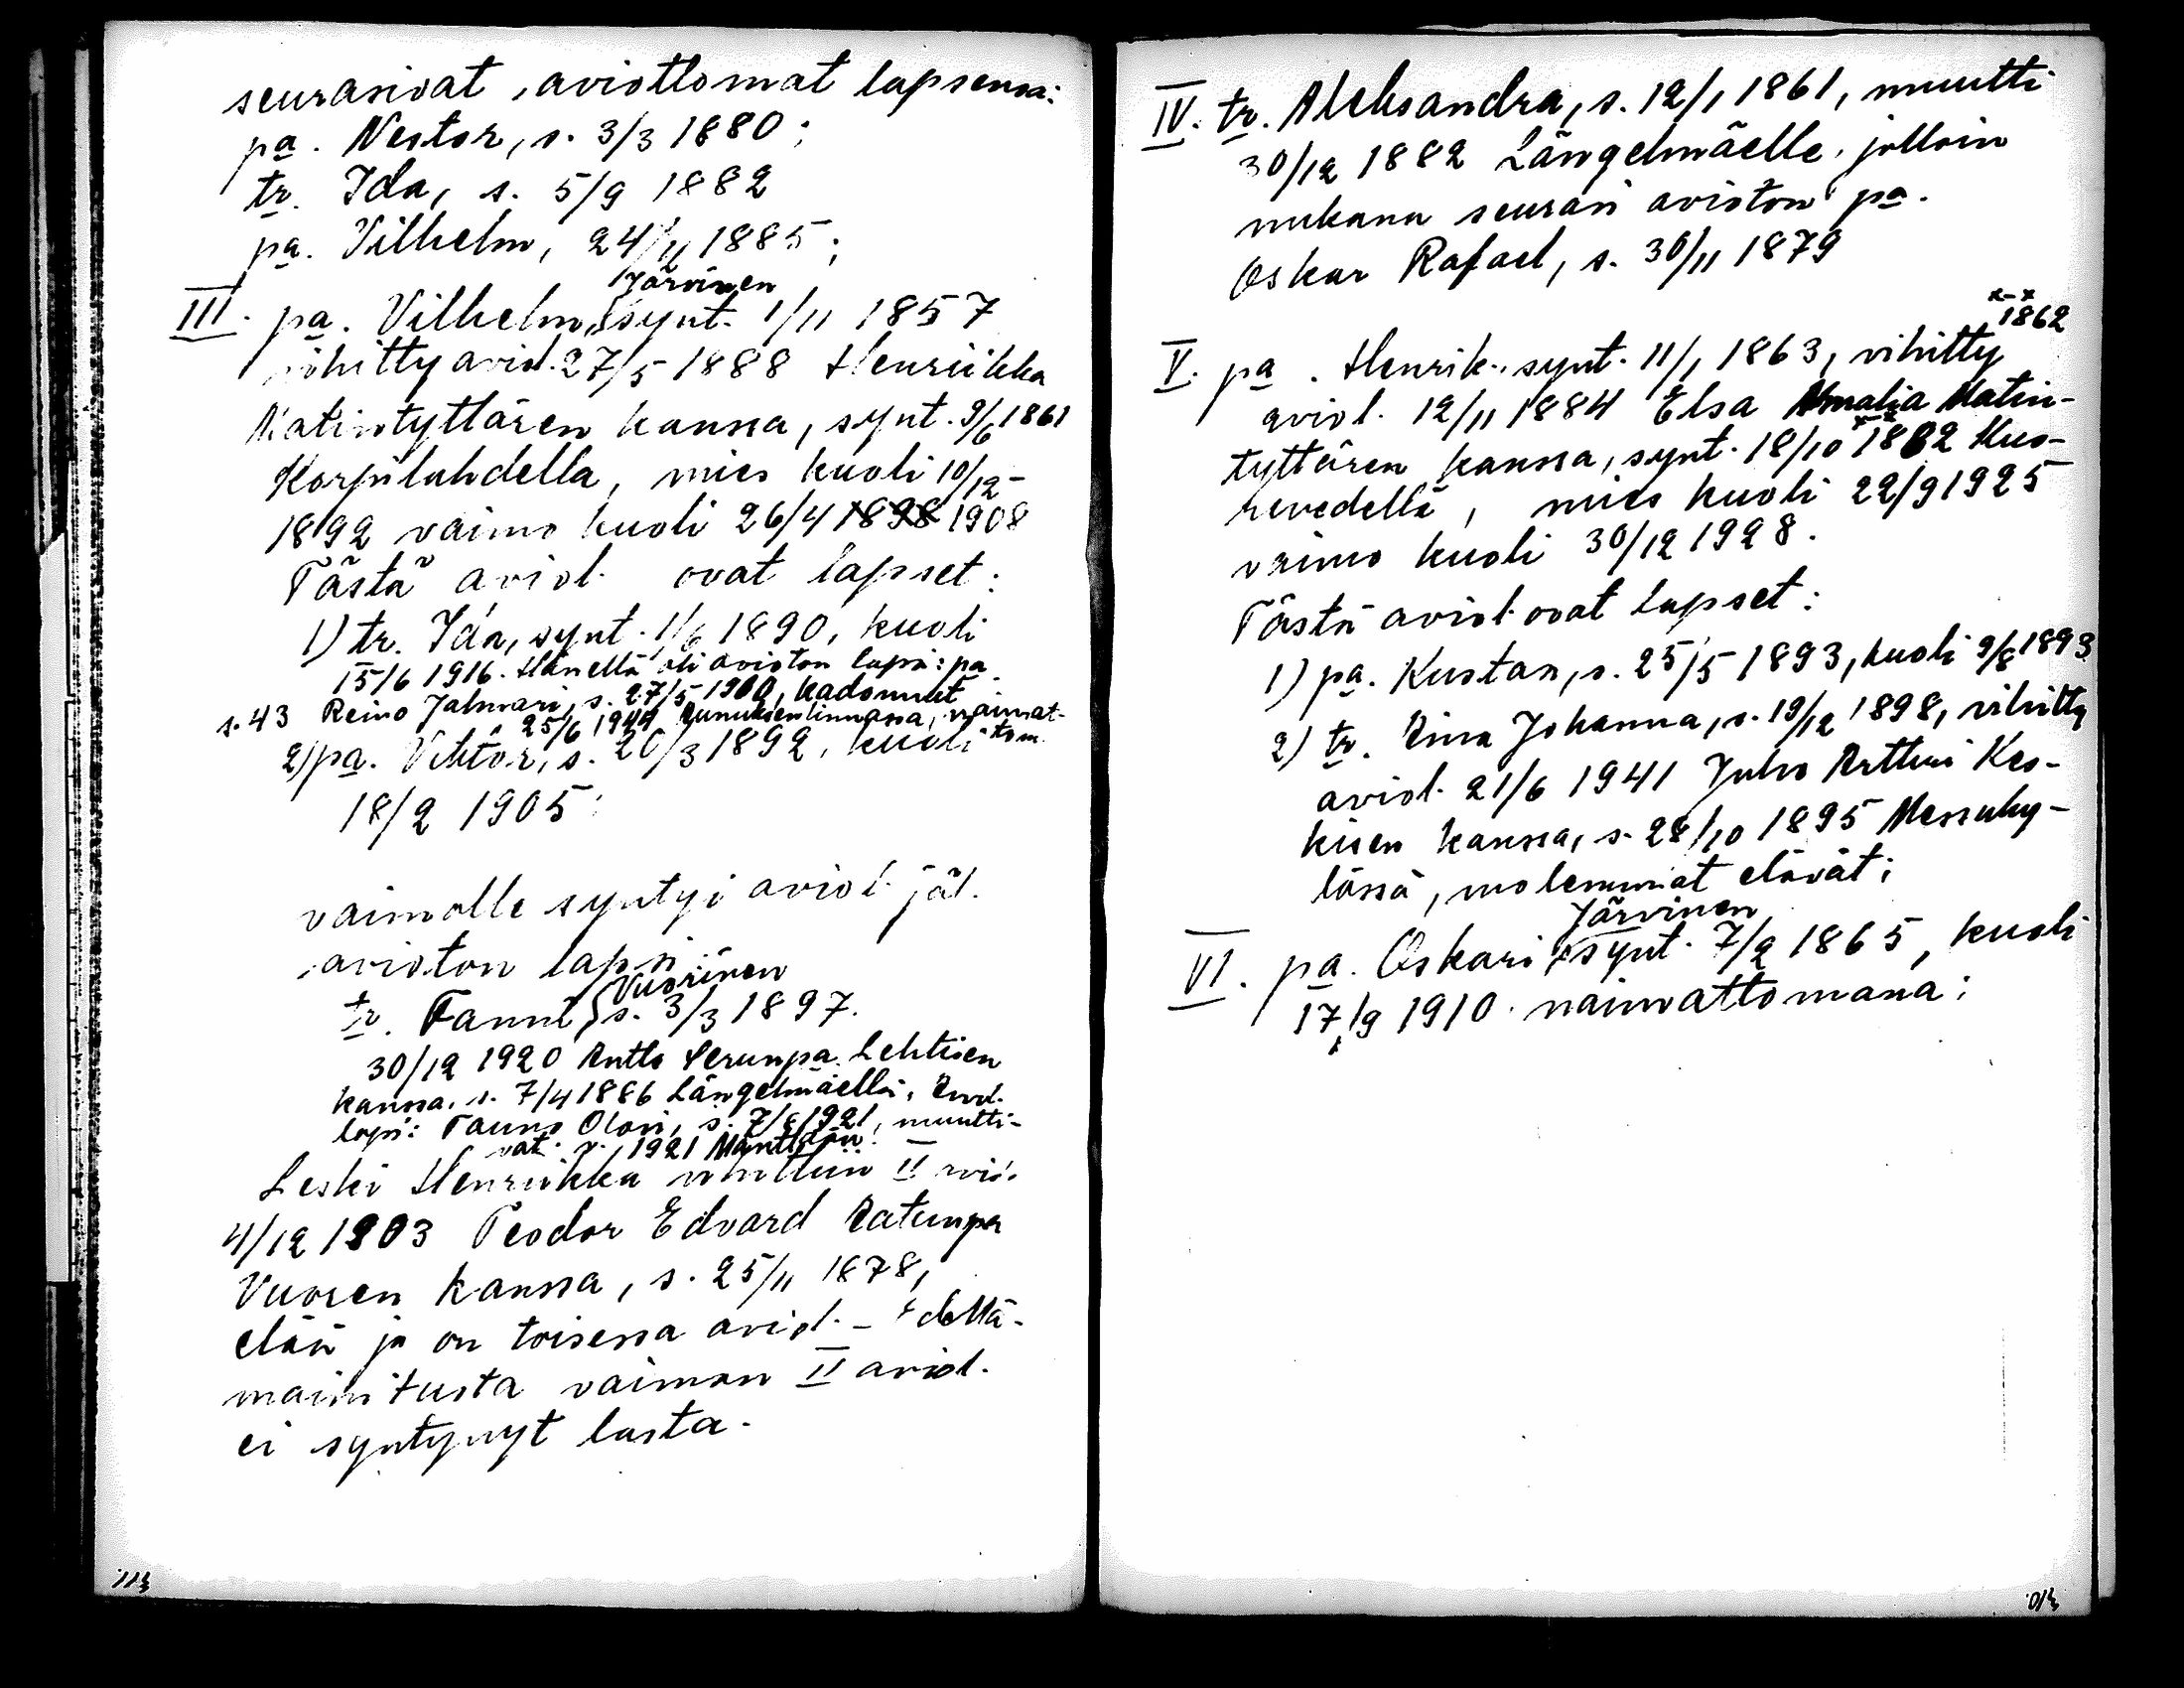 seurasivat, aviottomat lapsensa:
pa. Nestor, s. 3/3 1880;
tr. Ida, s. 5/9 1882
pa. Vilhelm, 24/11 1885;
Järvinen
III. pa. Vilhelm, synt. 1/11 1857
vihitty aviol. 27/5 1888 Henriikka
Matintyttären kanssa, synt. 9/6 1861
Korpilahdella, mies kuoli 10/12-
1892 vaimo kuoli 26/4 1898 1908
Tästä aviol. ovat lapset:
1) tr. Ida, synt. 1/6 1890, kuoli
15/6 1916. Hänellä oli avioton lapsi: pa.
s. 43 Reino Jalmari, s. 27/5 1910, kadonnut
25/6 1944 Aunuksenlinnassa, naimat-
tom.
2) pa. Vihtor, s. 20/3 1892, kuoli
18/2 1905;
vaimolle syntyi aviol. jäl.
avioton lapsi:
Vuorinen
tr. Fanni, s. 3/3 1897.
30/12 1920 Antto Serunpa. Lehtisen
kanssa, s. 7/4 1886 Längelmäellä, Aviol.
lapsi: Tauno Olavi, s. 7/8 1921, muutti-
vat v. 1921 Mänttään.
Leski Henriikka vihittiin II avio.
4/12 1903 Teodor Edvard Aatunpa
Vuoren kanssa, s. 25/11 1878,
elää ja on toisessa aviol. - Edellä-
mainitusta vaimon II aviol.
ei syntynyt lasta.
IV. tr. Aleksandra, s. 12/1 1861, muutti
30/12 1882 Längelmäelle, jolloin
mukana seurasi avioton pa.
Oskar Rafael, s. 30/11 1879
x-x
1862
V. pa. Henrik, synt. 11/1 1863, vihitty
aviol. 12/11 1884 Elsa Amalia Matin-
tyttären kanssa, synt. 18/10 1862 Kuo-
revedellä, mies kuoli 22/9 1925
vaimo kuoli 30/12 1928.
Tästä aviol. ovat lapset:
1) pa. Kustaa, s. 25/5 1893, kuoli 9/8 1893
2) tr. Aina Johanna, s. 19/12 1898, vihitty
aviol. 21/6 1941 Juho Artturi Kes-
kisen kanssa, s. 28/10 1895 Messuky-
lässä, molemmat elävät;
Järvinen
VI. pa. Oskari, synt. 7/2 1865, kuoli
17/9 1910 naimattomana;
311.
310.